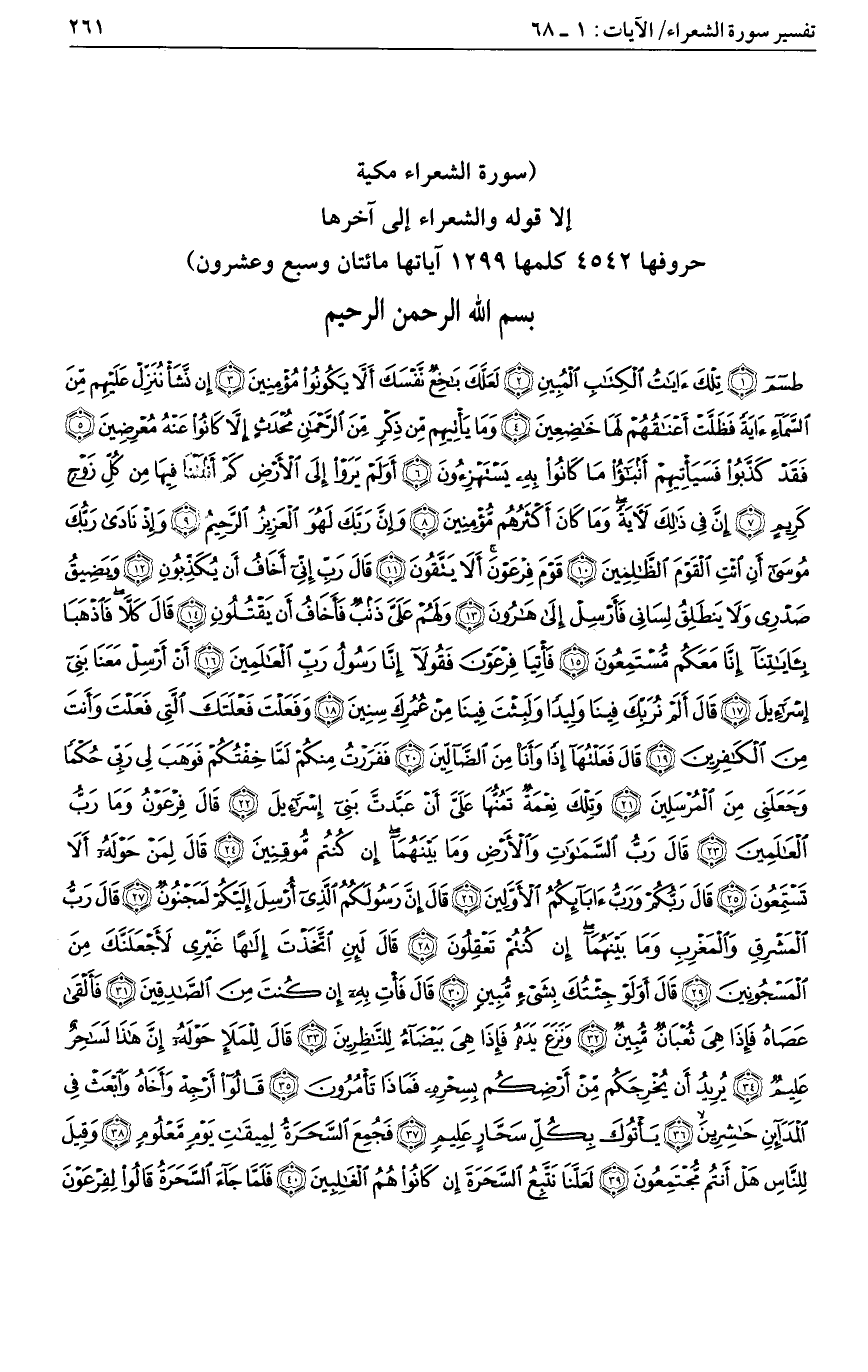 تفسير سورة الشعراء/ الآيات : ١ ـ ٦٨ ٢٦١
(سورة الشعراء مكية
إلا قوله والشعراء إلى آخرها
حروفها ٤٥٤٢ كلمها ١٢٩٩ آياتها مائتان وسبع وعشرون)
بسم الله الرحمن الرحيم
طسٓمٓ ﴿١﴾ تِلْكَ ءَايَٰتُ ٱلْكِتَٰبِ ٱلْمُبِينِ ﴿٢﴾ لَعَلَّكَ بَٰخِعٌ نَّفْسَكَ أَلَّا يَكُونُوا۟ مُؤْمِنِينَ ﴿٣﴾ إِن نَّشَأْ نُنَزِّلْ عَلَيْهِم مِّنَ
ٱلسَّمَآءِ ءَايَةً فَظَلَّتْ أَعْنَٰقُهُمْ لَهَا خَٰضِعِينَ ﴿٤﴾ وَمَا يَأْتِيهِم مِّن ذِكْرٍ مِّنَ ٱلرَّحْمَٰنِ مُحْدَثٍ إِلَّا كَانُوا۟ عَنْهُ مُعْرِضِينَ ﴿٥﴾
فَقَدْ كَذَّبُوا۟ فَسَيَأْتِيهِمْ أَنۢبَٰٓؤُا۟ مَا كَانُوا۟ بِهِۦ يَسْتَهْزِءُونَ ﴿٦﴾ أَوَلَمْ يَرَوْا۟ إِلَى ٱلْأَرْضِ كَمْ أَنۢبَتْنَا فِيهَا مِن كُلِّ زَوْجٍ
كَرِيمٍ ﴿٧﴾ إِنَّ فِى ذَٰلِكَ لَءَايَةً ۖ وَمَا كَانَ أَكْثَرُهُم مُّؤْمِنِينَ ﴿٨﴾ وَإِنَّ رَبَّكَ لَهُوَ ٱلْعَزِيزُ ٱلرَّحِيمُ ﴿٩﴾ وَإِذْ نَادَىٰ رَبُّكَ
مُوسَىٰٓ أَنِ ٱئْتِ ٱلْقَوْمَ ٱلظَّٰلِمِينَ ﴿١٠﴾ قَوْمَ فِرْعَوْنَ ۚ أَلَا يَتَّقُونَ ﴿١١﴾ قَالَ رَبِّ إِنِّىٓ أَخَافُ أَن يُكَذِّبُونِ ﴿١٢﴾ وَيَضِيقُ
صَدْرِى وَلَا يَنطَلِقُ لِسَانِى فَأَرْسِلْ إِلَىٰ هَٰرُونَ ﴿١٣﴾ وَلَهُمْ عَلَىَّ ذَنۢبٌ فَأَخَافُ أَن يَقْتُلُونِ ﴿١٤﴾ قَالَ كَلَّا ۖ فَٱذْهَبَا
بِـَٔايَٰتِنَآ ۖ إِنَّا مَعَكُم مُّسْتَمِعُونَ ﴿١٥﴾ فَأْتِيَا فِرْعَوْنَ فَقُولَآ إِنَّا رَسُولُ رَبِّ ٱلْعَٰلَمِينَ ﴿١٦﴾ أَنْ أَرْسِلْ مَعَنَا بَنِىٓ
إِسْرَٰٓءِيلَ ﴿١٧﴾ قَالَ أَلَمْ نُرَبِّكَ فِينَا وَلِيدًا وَلَبِثْتَ فِينَا مِنْ عُمُرِكَ سِنِينَ ﴿١٨﴾ وَفَعَلْتَ فَعْلَتَكَ ٱلَّتِى فَعَلْتَ وَأَنتَ
مِنَ ٱلْكَٰفِرِينَ ﴿١٩﴾ قَالَ فَعَلْتُهَآ إِذًا وَأَنَا۠ مِنَ ٱلضَّآلِّينَ ﴿٢٠﴾ فَفَرَرْتُ مِنكُمْ لَمَّا خِفْتُكُمْ فَوَهَبَ لِى رَبِّى حُكْمًا
وَجَعَلَنِى مِنَ ٱلْمُرْسَلِينَ ﴿٢١﴾ وَتِلْكَ نِعْمَةٌ تَمُنُّهَا عَلَىَّ أَنْ عَبَّدتَّ بَنِىٓ إِسْرَٰٓءِيلَ ﴿٢٢﴾ قَالَ فِرْعَوْنُ وَمَا رَبُّ
ٱلْعَٰلَمِينَ ﴿٢٣﴾ قَالَ رَبُّ ٱلسَّمَٰوَٰتِ وَٱلْأَرْضِ وَمَا بَيْنَهُمَآ ۖ إِن كُنتُم مُّوقِنِينَ ﴿٢٤﴾ قَالَ لِمَنْ حَوْلَهُۥٓ أَلَا
تَسْتَمِعُونَ ﴿٢٥﴾ قَالَ رَبُّكُمْ وَرَبُّ ءَابَآئِكُمُ ٱلْأَوَّلِينَ ﴿٢٦﴾ قَالَ إِنَّ رَسُولَكُمُ ٱلَّذِىٓ أُرْسِلَ إِلَيْكُمْ لَمَجْنُونٌ ﴿٢٧﴾ قَالَ رَبُّ
ٱلْمَشْرِقِ وَٱلْمَغْرِبِ وَمَا بَيْنَهُمَآ ۖ إِن كُنتُمْ تَعْقِلُونَ ﴿٢٨﴾ قَالَ لَئِنِ ٱتَّخَذْتَ إِلَٰهًا غَيْرِى لَأَجْعَلَنَّكَ مِنَ
ٱلْمَسْجُونِينَ ﴿٢٩﴾ قَالَ أَوَلَوْ جِئْتُكَ بِشَىْءٍ مُّبِينٍ ﴿٣٠﴾ قَالَ فَأْتِ بِهِۦٓ إِن كُنتَ مِنَ ٱلصَّٰدِقِينَ ﴿٣١﴾ فَأَلْقَىٰ
عَصَاهُ فَإِذَا هِىَ ثُعْبَانٌ مُّبِينٌ ﴿٣٢﴾ وَنَزَعَ يَدَهُۥ فَإِذَا هِىَ بَيْضَآءُ لِلنَّٰظِرِينَ ﴿٣٣﴾ قَالَ لِلْمَلَإِ حَوْلَهُۥٓ إِنَّ هَٰذَا لَسَٰحِرٌ
عَلِيمٌ ﴿٣٤﴾ يُرِيدُ أَن يُخْرِجَكُم مِّنْ أَرْضِكُم بِسِحْرِهِۦ فَمَاذَا تَأْمُرُونَ ﴿٣٥﴾ قَالُوٓا۟ أَرْجِهْ وَأَخَاهُ وَٱبْعَثْ فِى
ٱلْمَدَآئِنِ حَٰشِرِينَ ﴿٣٦﴾ يَأْتُوكَ بِكُلِّ سَحَّارٍ عَلِيمٍ ﴿٣٧﴾ فَجُمِعَ ٱلسَّحَرَةُ لِمِيقَٰتِ يَوْمٍ مَّعْلُومٍ ﴿٣٨﴾ وَقِيلَ
لِلنَّاسِ هَلْ أَنتُم مُّجْتَمِعُونَ ﴿٣٩﴾ لَعَلَّنَا نَتَّبِعُ ٱلسَّحَرَةَ إِن كَانُوا۟ هُمُ ٱلْغَٰلِبِينَ ﴿٤٠﴾ فَلَمَّا جَآءَ ٱلسَّحَرَةُ قَالُوا۟ لِفِرْعَوْنَ